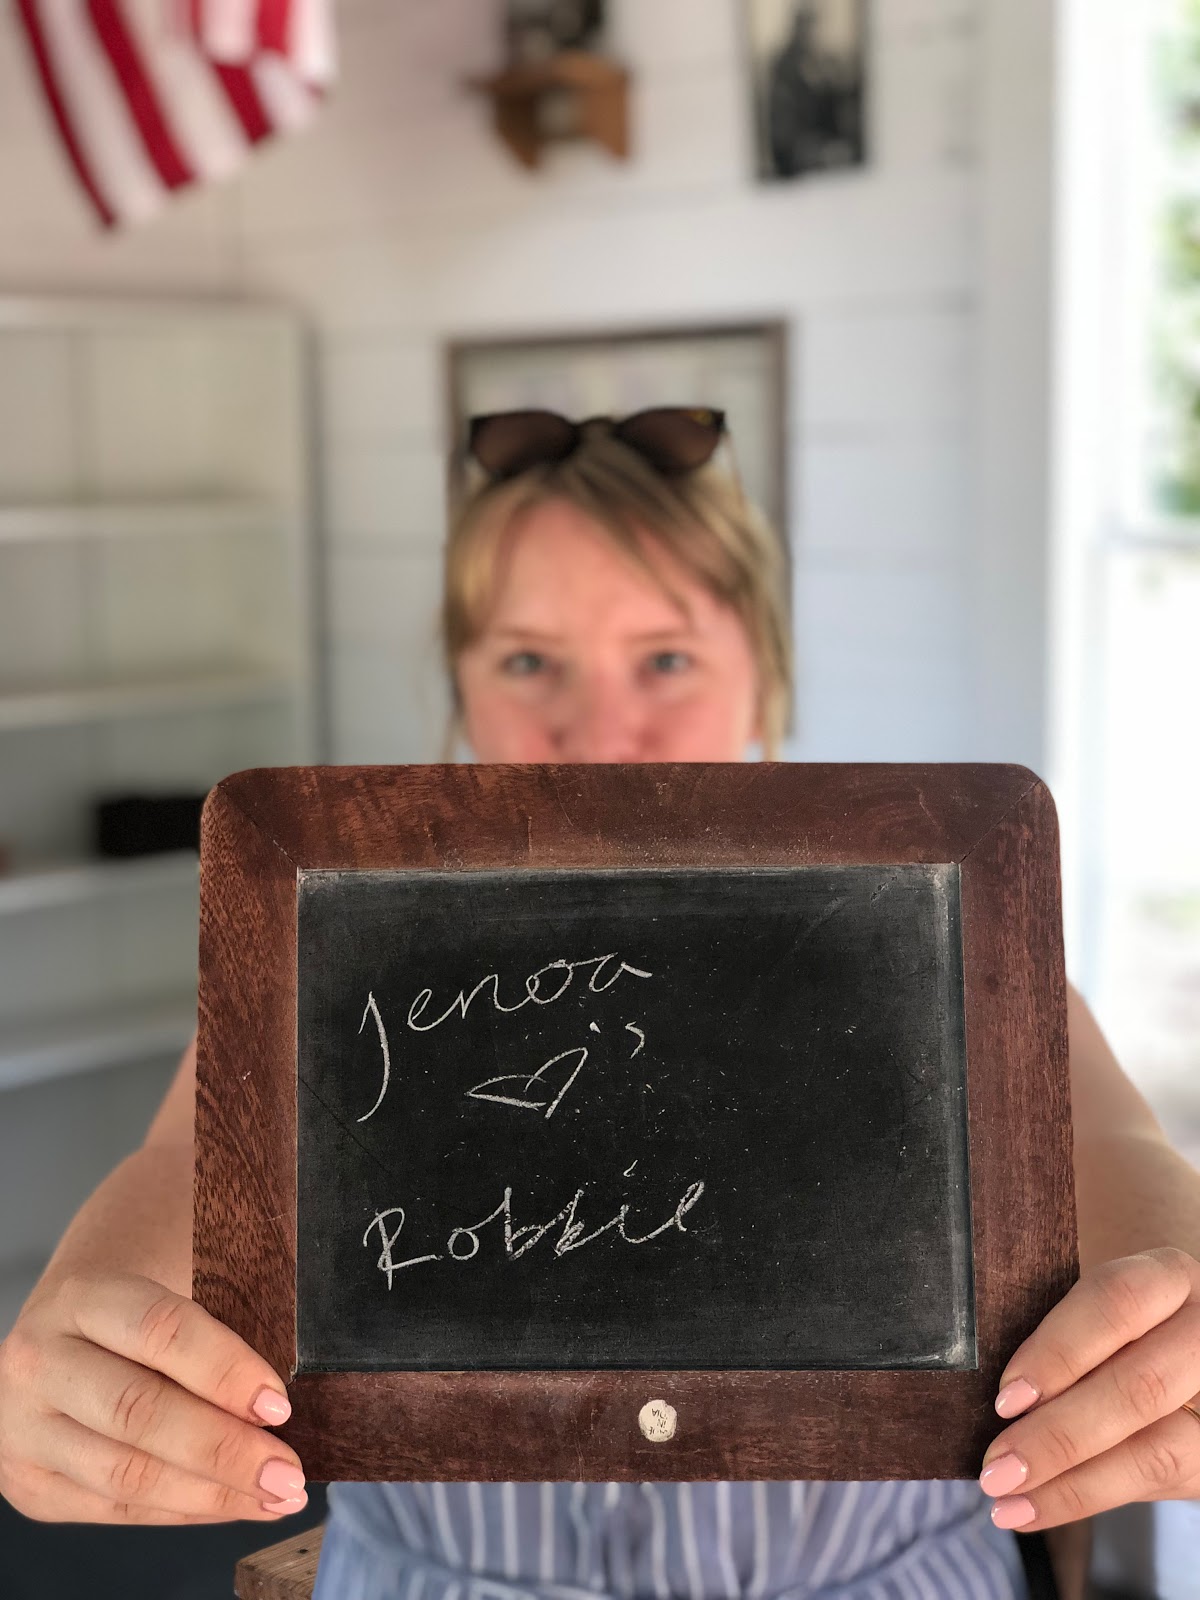 Jenoa
♡'s
Robbie